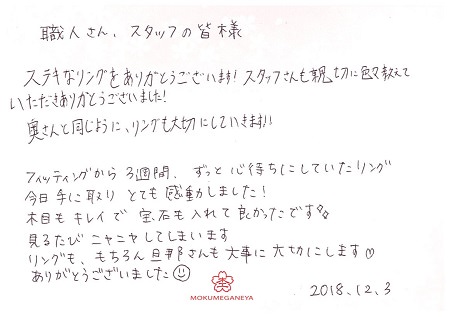 職人さん、スタッフの皆様
ステキなリングをありがとうございます！スタッフさんも親切に色々教えて
いただきありがとうございました！
奥さんと同じように、リングも大切にしていきます!!
フィッティングから3週間、ずっと心待ちにしていたリング
今日手に取り とても感動しました！
木目もキレイで 宝石も入れて良かったです
見るたび ニヤニヤしてしまいます
リングも、もちろん旦那さんも大事に大切にします♡
ありがとうございました☺
MOKUMEGANEYA
2018.12.3